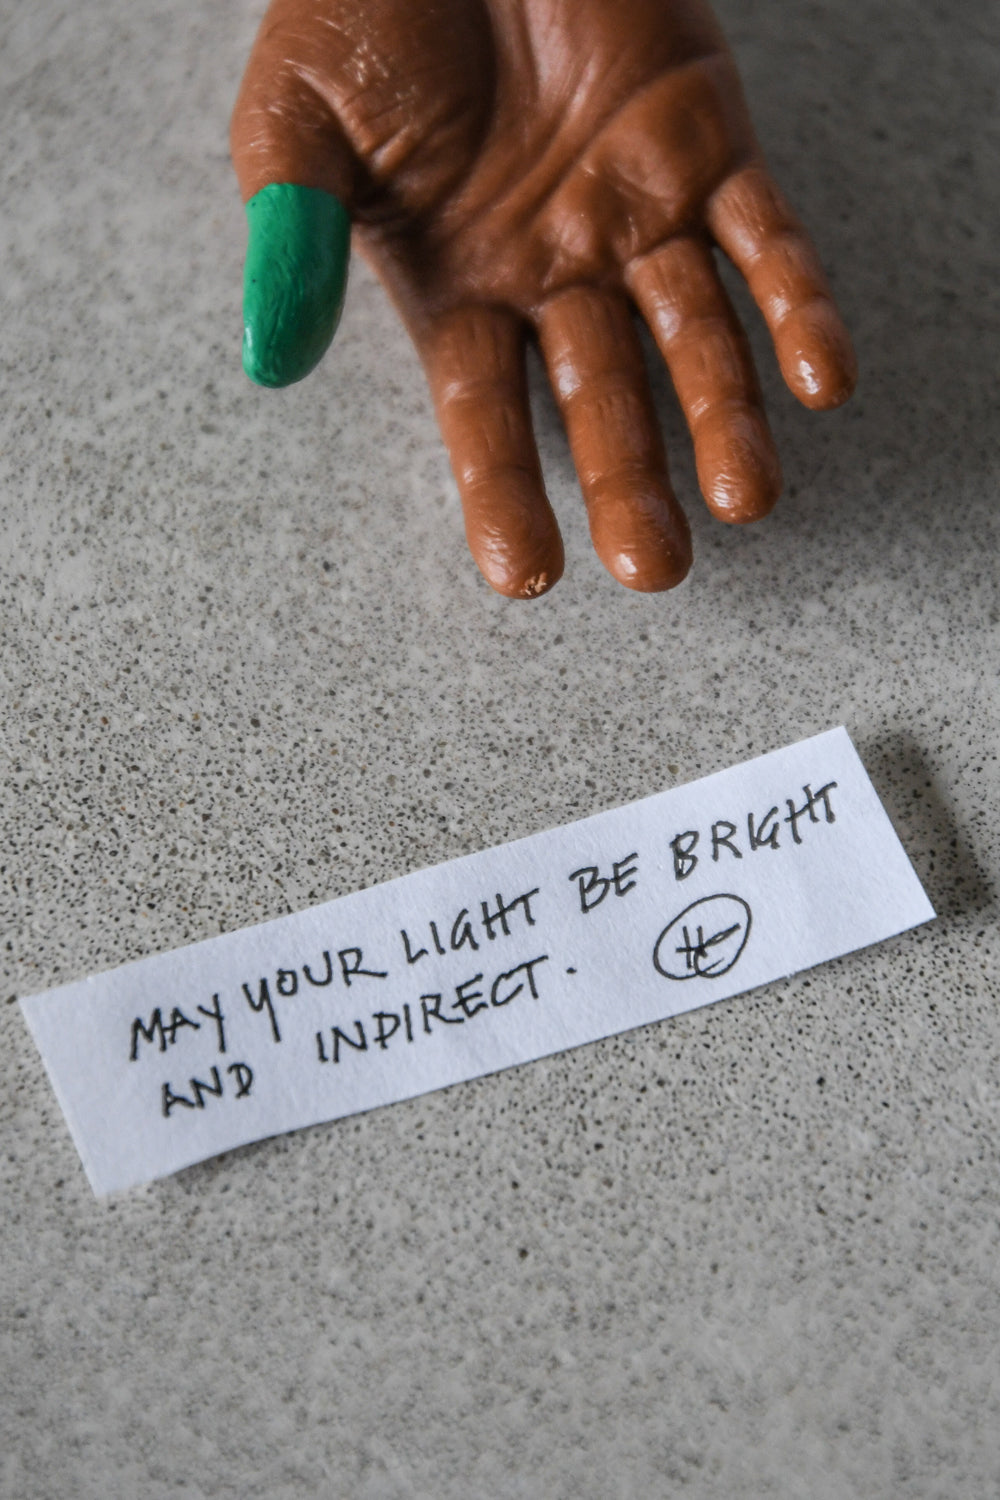 MAY YOUR LIGHT BE BRIGHT
AND INDIRECT. HC